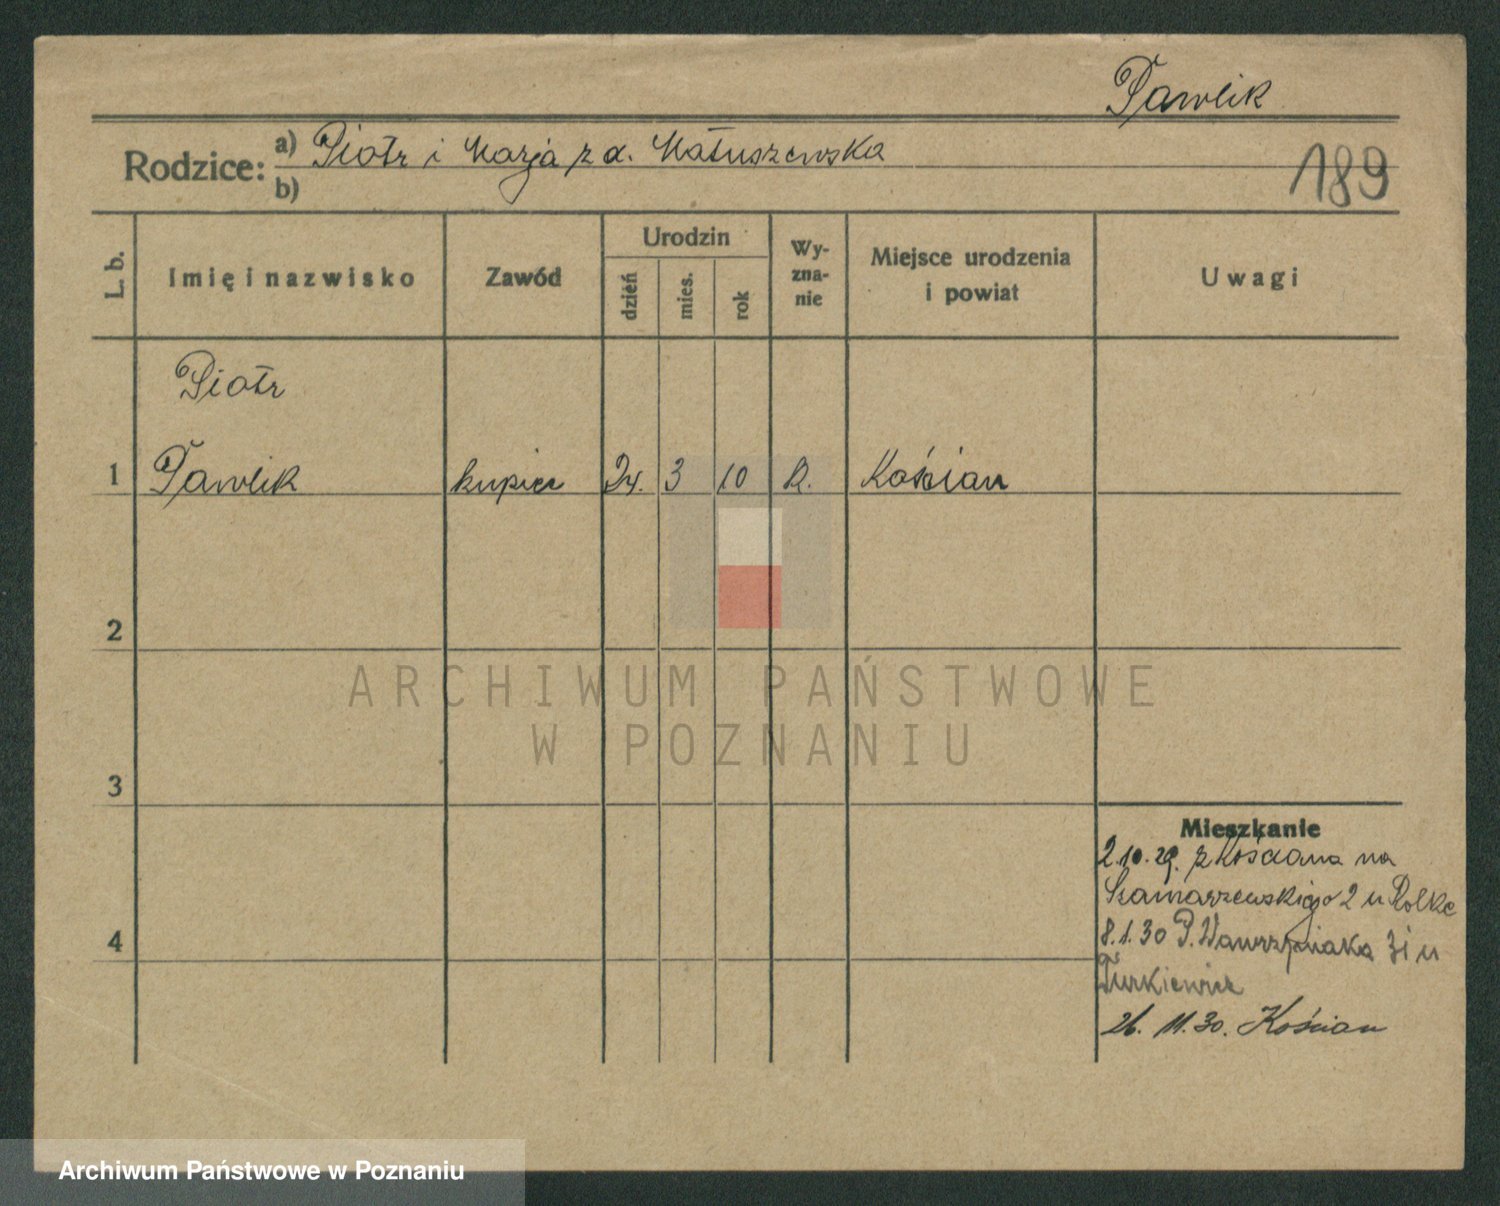 Pawlik
Rodzice: a) Piotr i Marja z d. Matuszewska
b)
189
L. b.
Imię i nazwisko
Zawód
Urodzin
dzień
mies.
rok
Wy-
zna-
nie
Miejsce urodzenia
i powiat
Uwagi
Piotr
1 Pawlik kupiec 24. 3 10 R. Kościan
2
3
4
Mieszkanie
2.10.29. z Kościana na
Szamarzewskiego 2 u Polke
8.1.30 P. Wawrzyniaka 31 u
Turkiewicz
26. 11. 30. Kościan
ARCHIWUM PAŃSTWOWE
W POZNANIU
Archiwum Państwowe w Poznaniu